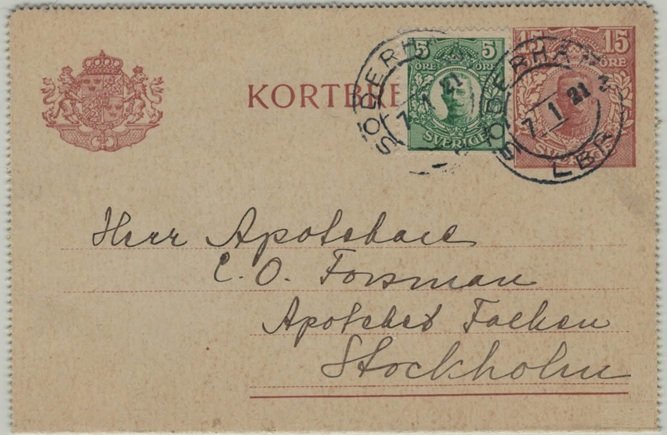 KORTBRE
5 5
ÖRE
SVERIGE
15 15
ÖRE
SÖDERHA
7.1.21
SÖDERHA
7.1.21
LBR
Herr Apotekare
C. O. Forsman
Apoteket Falken
Stockholm